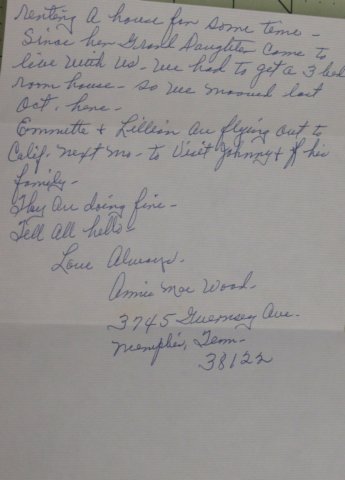 renting A house for some time -
Since her Grand Daughter Come to
live with us - we had to get a 3 bed
room house - so we mooved last
Oct. here -
Emmette & Lillian are flying out to
Calif. next mo - to visit Johnny & his
family -
They are doing fine -
Tell All hello -
Love Always -
Annie Mae Wood -
3745 Guernsey Ave.
Memphis, Tenn -
38122